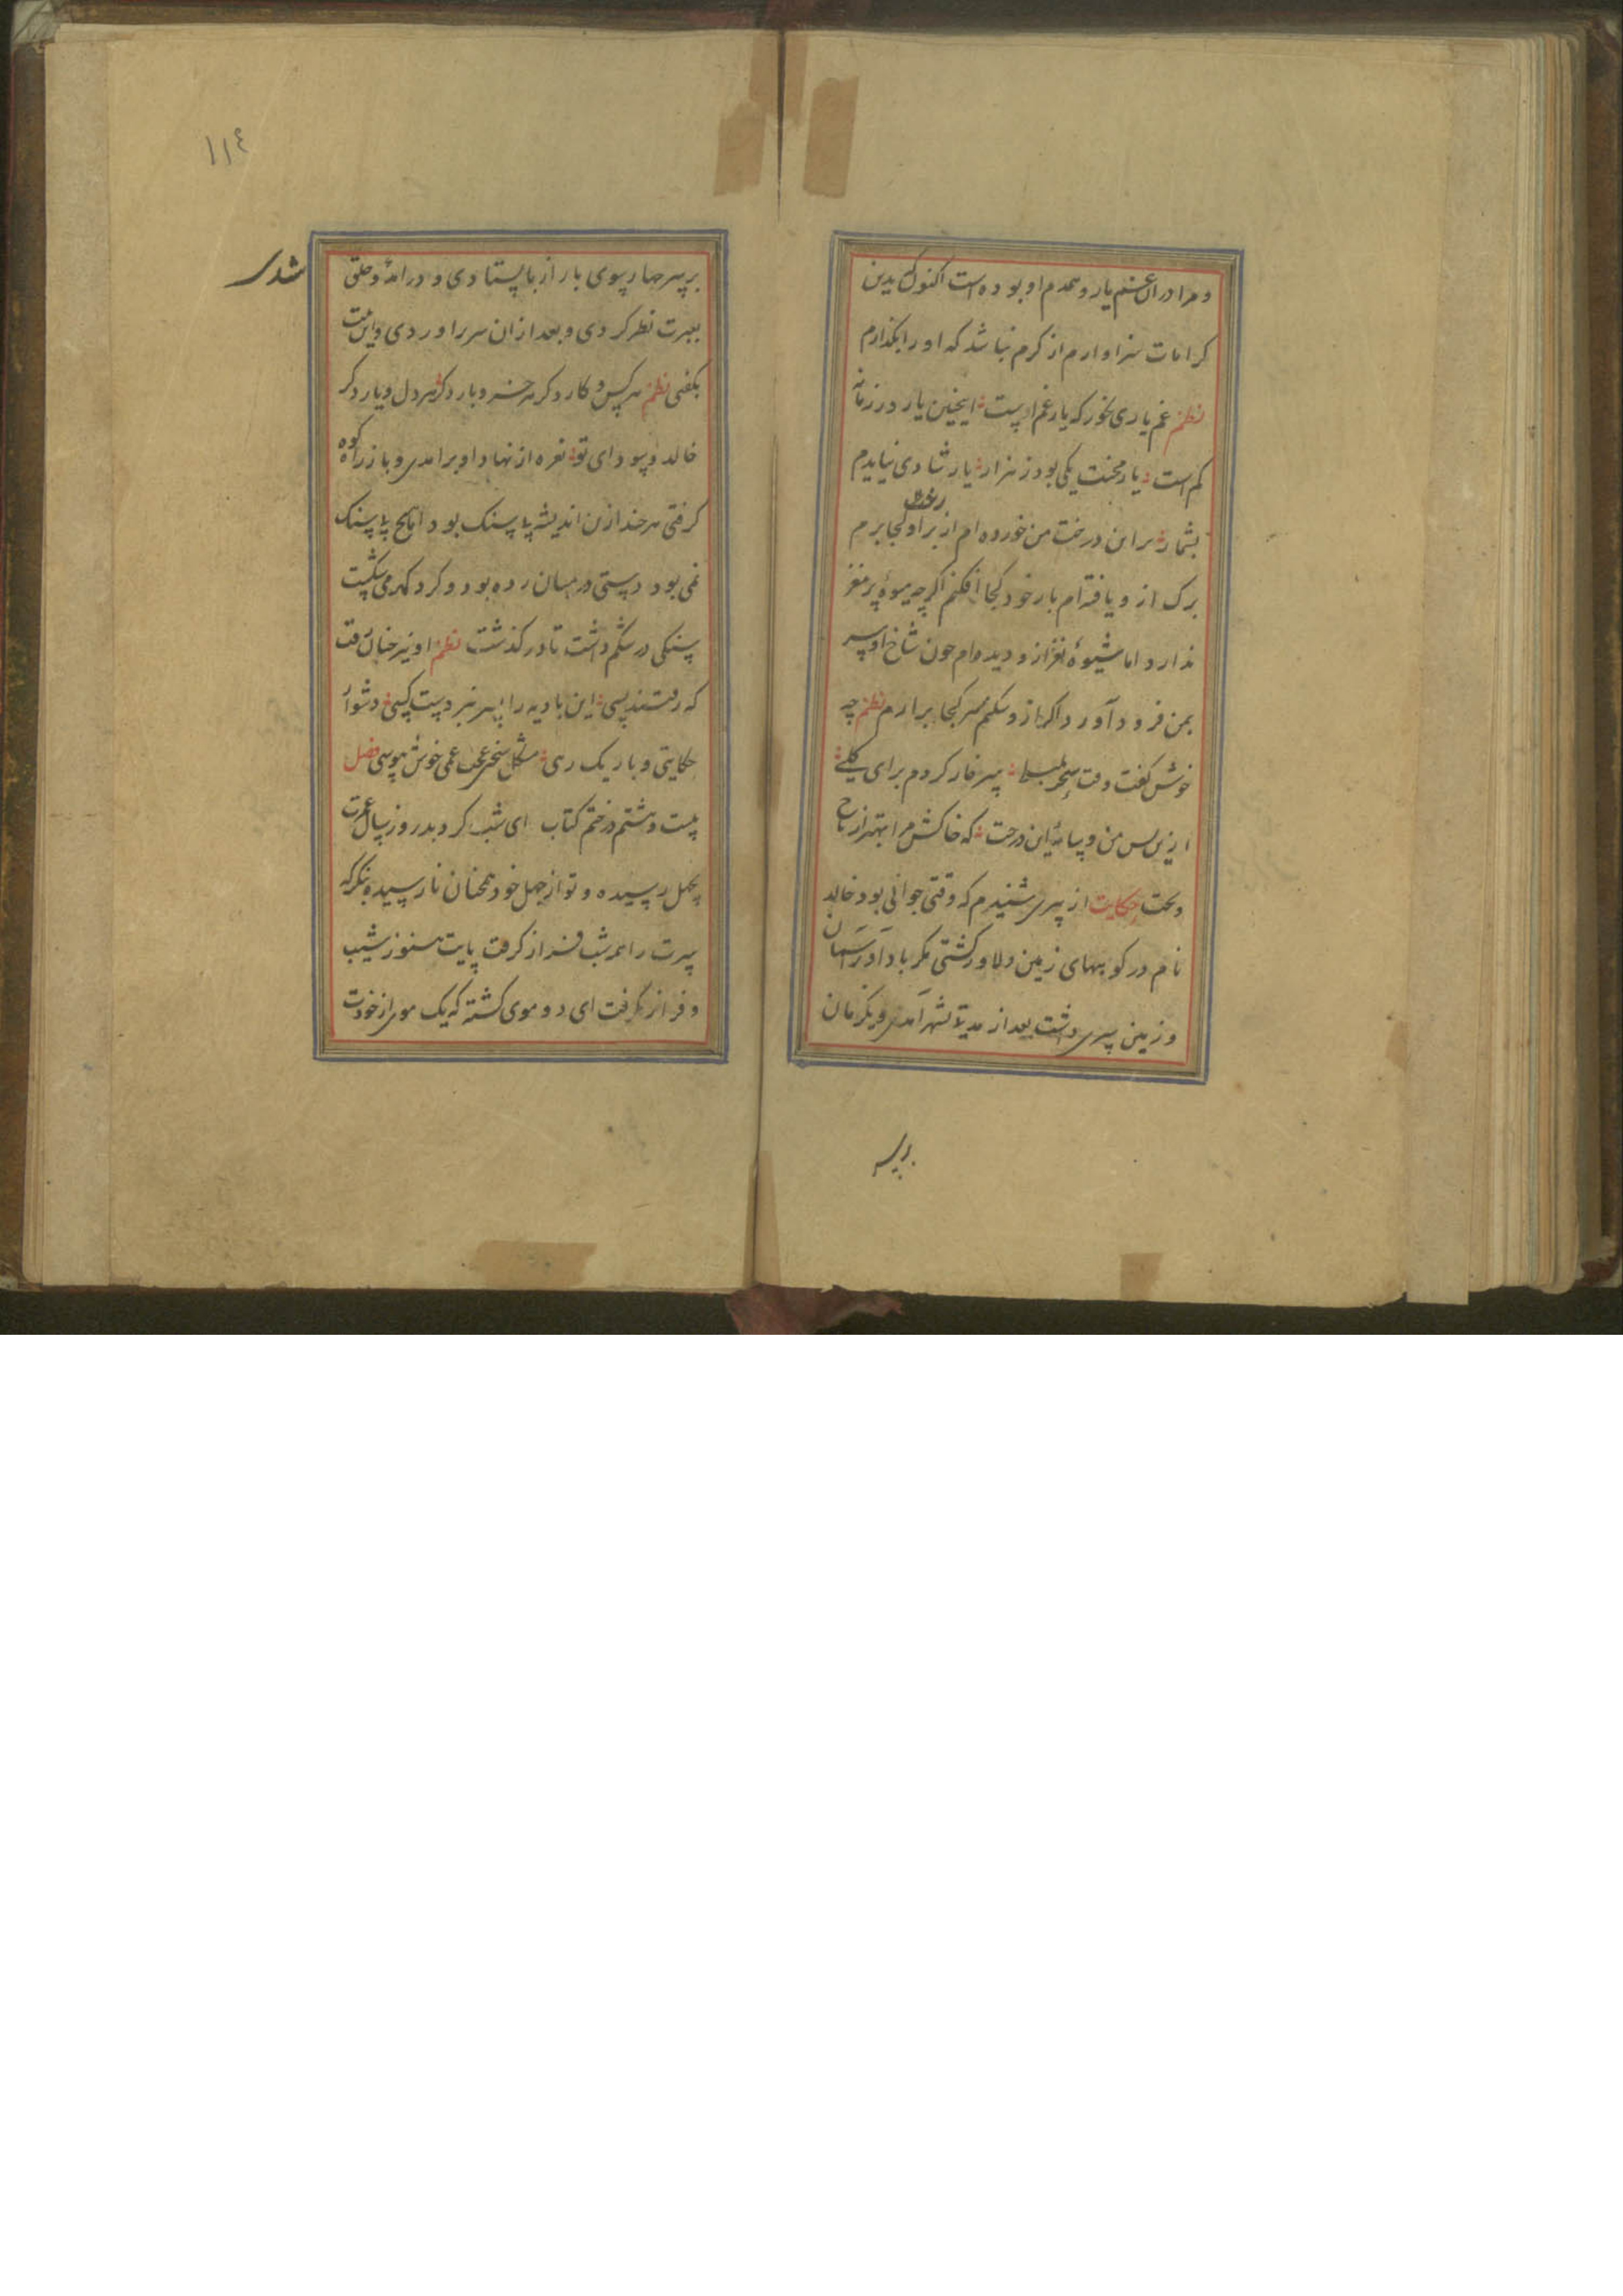 و مرا در ان غم یار و همدم او بوده است اکنون که بدین
کرامات سزاوارم از کرم نباشد که او را بگذارم
نظم غم یاری بخور که یار غم اوست اینچنین یار در زمانه
کم است یار محنت یکی بود ز هزار یار شادی نیایدم
بشمار بر این درخت من خورده ام از بر او کجا برم
برک از و یافته ام بار خود کجا افکنم اگر چه میوۀ پر مغز
ندارد اما شیوۀ نغز از و دیده ام چون شاخ او سر
بمن فرود آورد اگر از و شکم سر کجا برارم نظم چه
خوش گفت وقت سحر بلبلی سر خار کردم برای کلی
ازین پس من و سایۀ این درخت که خاکش مرا بهتر از تاج
و تخت حکایت از پیری شنیدم که وقتی جوانی بود خالد
نام در کوههای زمین دلاور گشتی مگر باد آدر آسمان
و زمین سری داشت بعد از مدتی بشهر آمدی و یکزمان
بر سر
١١٤
بر سر چهار سوی بازار بایستادی و در آمد و خلق
بعبرت نظر کردی و بعد از ان سر براوردی و این بیت
بگفتی نظم هر کس و کار دگر هر خس و بار دگر هر دل و یار دگر
خالد و سودای تو نعره از نهاد او برامدی و باز راه کوه
گرفتی هر چند ازن اندیشه پا سنگ بود اما هیچ پا سنگ
نمی بود دستی در میان زده بود و گرد کهر می گشت
سنگی در شکم داشت تا در گذشت نظم او نیز چنان رفت
که رفتند بسی این بادیه را بسر نبردست کسی دشوار
حکایتی و باریک رهی مشکل سخنی عجب غمی خوش هوسی فصل
بیست و هشتم در ختم کتاب ای شب کرده بدروز سال عمرت
بچهل رسیده و تو از جهل خود همچنان نارسیده بنگر که
سرت را همر شب فراز گرفت پایت هنوز نشیب
و فراز نگرفت ای دو موی گشته که یک موی از خودت
شدی